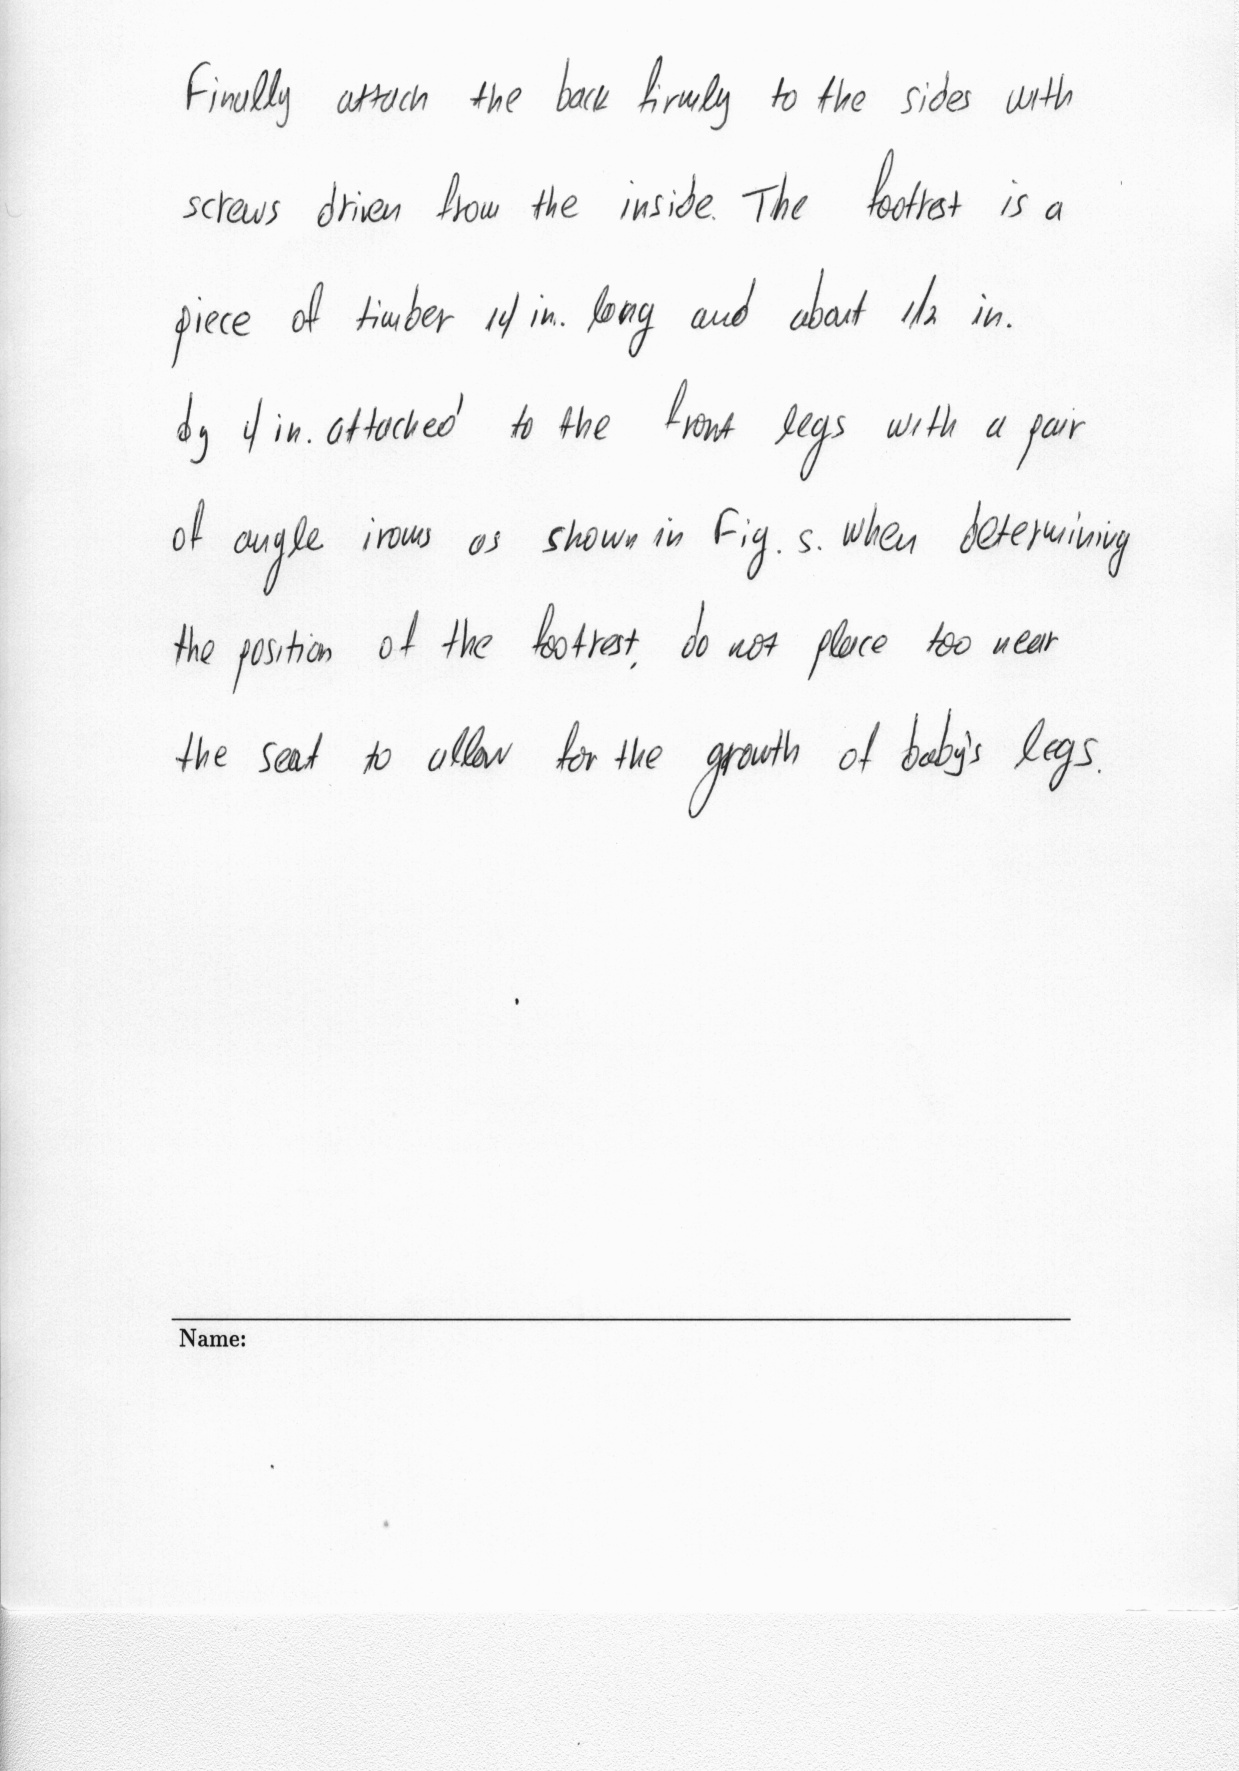 Finally attach the back firmly to the sides with
screws driven from the inside. The footrest is a
piece of timber 14 in. long and about 1/2 in.
by 4 in. attached to the front legs with a pair
of angle irons as shown in Fig. 5. When determining
the position of the footrest, do not place too near
the seat to allow for the growth of baby's legs.
Name: